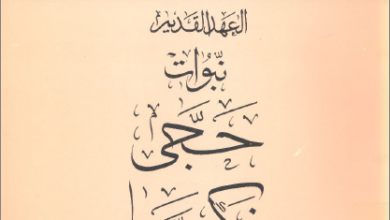 العهد القديم
نبّوات
حَجَّى